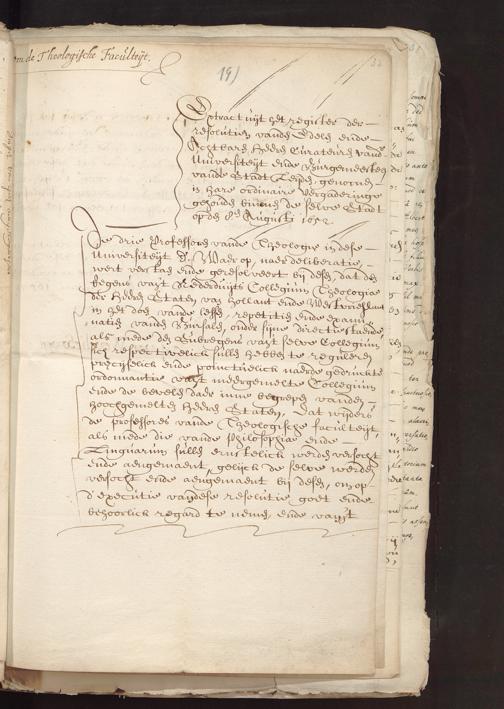 in de Theologische Faculteijt.
191
32
Extract uijt het register der
resolutien vande Edele ende
Achtbare Heeren Curateuren vande
Universiteijt ende Burgermeesteren
vande Stadt Leijden, genomen
in hare ordinaire vergaderinge
gehouden binnen de selve Stadt
op den 8en Augusti 1652
De drie Professoren vande Theologie in dese
Universiteijt D. naer deliberatie,
verstaen ende geresolveert bij desen, dat de
Regent vant Nederduijts Collegium Theologie
der Heeren Staten van Hollant ende Westvrieslant
in het doen vande lessen, repetitien ende exami
natien vande Bursalen, onder sijne directie staende,
als mede den Subregent vant selve Collegium
sich respectivelijck sullen hebben te reguleren
preciselijck ende punctuelijck naer de gedruckte
ordonnantie vant meergemelte Collegium
ende de bevelen daer inne begrepen vande
hoochgemelte Heeren Staten, Dat wijders
de professoren vande Theologische faculteijt
als mede die vande Philosophie ende
Linguarum sullen ernstelijck werden versocht
ende aengemaent, gelijck de selve werden
versocht ende aengemaent bij desen, om op
d'executie van dese resolutie goet ende
behoorlijck regard te nemen, ende vant